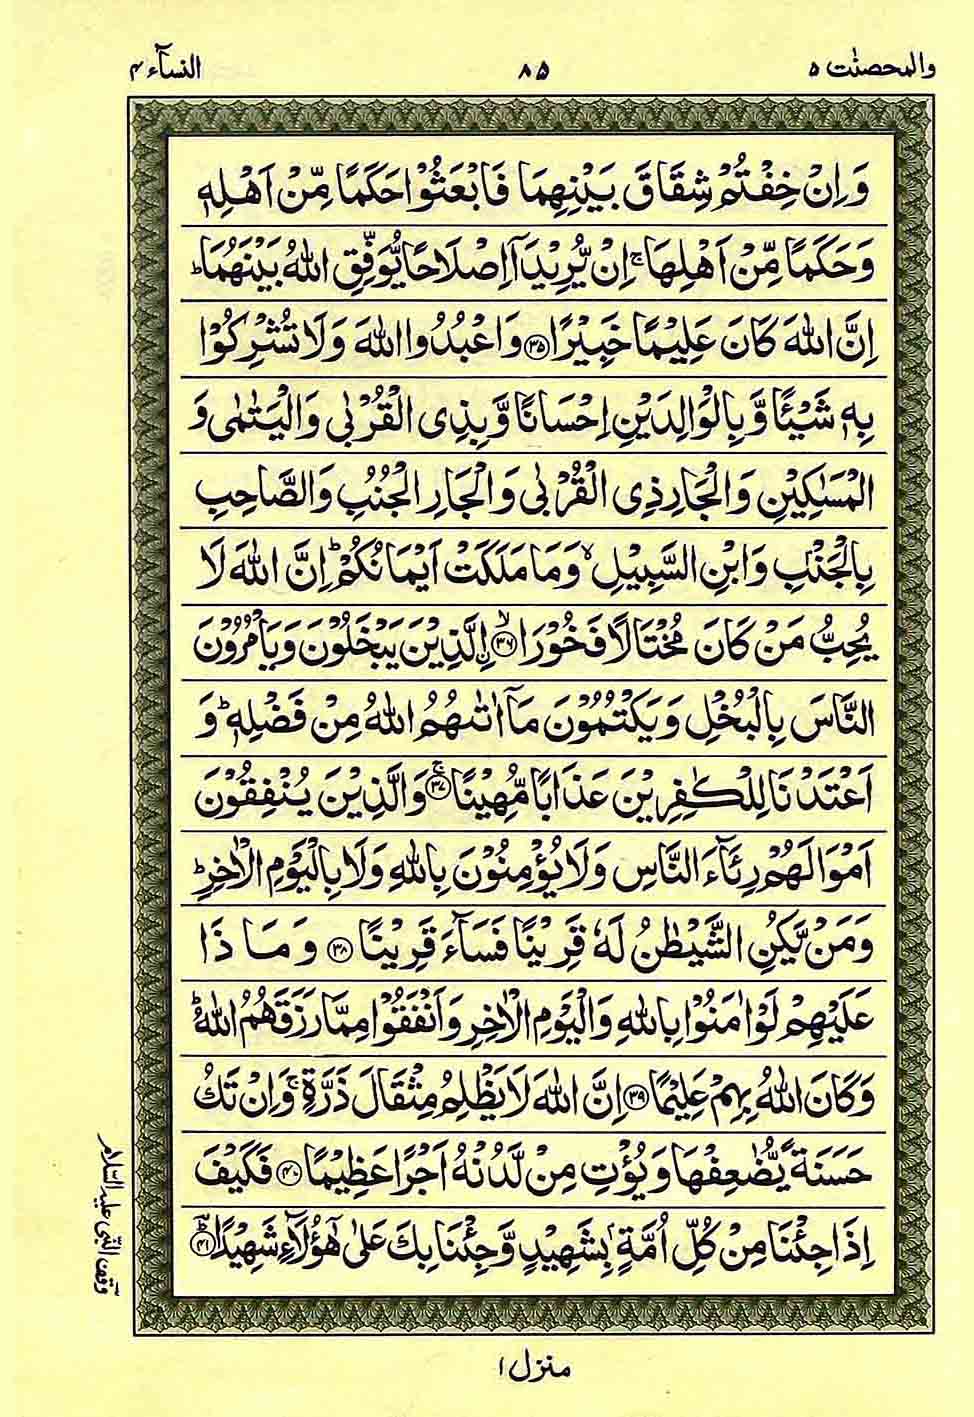 والمحصنٰت ۵ ۸۵ النسآء ۴
وَاِنْ خِفْتُمْ شِقَاقَ بَيْنِهِمَا فَابْعَثُوْا حَكَمًا مِّنْ اَهْلِهٖ
وَحَكَمًا مِّنْ اَهْلِهَا ۚ اِنْ يُّرِيْدَآ اِصْلَاحًا يُّوَفِّقِ اللّٰهُ بَيْنَهُمَا ؕ
اِنَّ اللّٰهَ كَانَ عَلِيْمًا خَبِيْرًا ﴿۳۵﴾ وَاعْبُدُوا اللّٰهَ وَلَا تُشْرِكُوْا
بِهٖ شَيْـًٔا وَّبِالْوَالِدَيْنِ اِحْسَانًا وَّبِذِى الْقُرْبٰى وَالْيَتٰمٰى وَ
الْمَسٰكِيْنِ وَالْجَارِ ذِى الْقُرْبٰى وَالْجَارِ الْجُنُبِ وَالصَّاحِبِ
بِالْجَنْۢبِ وَابْنِ السَّبِيْلِ ۙ وَمَا مَلَكَتْ اَيْمَانُكُمْ ؕ اِنَّ اللّٰهَ لَا
يُحِبُّ مَنْ كَانَ مُخْتَالًا فَخُوْرَا ﴿۳۶﴾ۙ اۨلَّذِيْنَ يَبْخَلُوْنَ وَيَاْمُرُوْنَ
النَّاسَ بِالْبُخْلِ وَيَكْتُمُوْنَ مَاۤ اٰتٰىهُمُ اللّٰهُ مِنْ فَضْلِهٖ ؕ وَ
اَعْتَدْنَا لِلْكٰفِرِيْنَ عَذَابًا مُّهِيْنًا ﴿۳۷﴾ۚ وَالَّذِيْنَ يُنْفِقُوْنَ
اَمْوَالَهُمْ رِئَآءَ النَّاسِ وَلَا يُؤْمِنُوْنَ بِاللّٰهِ وَلَا بِالْيَوْمِ الْاٰخِرِ ؕ
وَمَنْ يَّكُنِ الشَّيْطٰنُ لَهٗ قَرِيْنًا فَسَآءَ قَرِيْنًا ﴿۳۸﴾ وَمَا ذَا
عَلَيْهِمْ لَوْ اٰمَنُوْا بِاللّٰهِ وَالْيَوْمِ الْاٰخِرِ وَاَنْفَقُوْا مِمَّا رَزَقَهُمُ اللّٰهُ ؕ
وَكَانَ اللّٰهُ بِهِمْ عَلِيْمًا ﴿۳۹﴾ اِنَّ اللّٰهَ لَا يَظْلِمُ مِثْقَالَ ذَرَّةٍ ۚ وَاِنْ تَكُ
حَسَنَةً يُّضٰعِفْهَا وَيُؤْتِ مِنْ لَّدُنْهُ اَجْرًا عَظِيْمًا ﴿۴۰﴾ فَكَيْفَ
اِذَا جِئْنَا مِنْ كُلِّ اُمَّةٍۭ بِشَهِيْدٍ وَّجِئْنَا بِكَ عَلٰى هٰٓؤُلَآءِ شَهِيْدًا ؕ ﴿۴۱﴾
وقف النبی علیہ السلام
منزل ۱